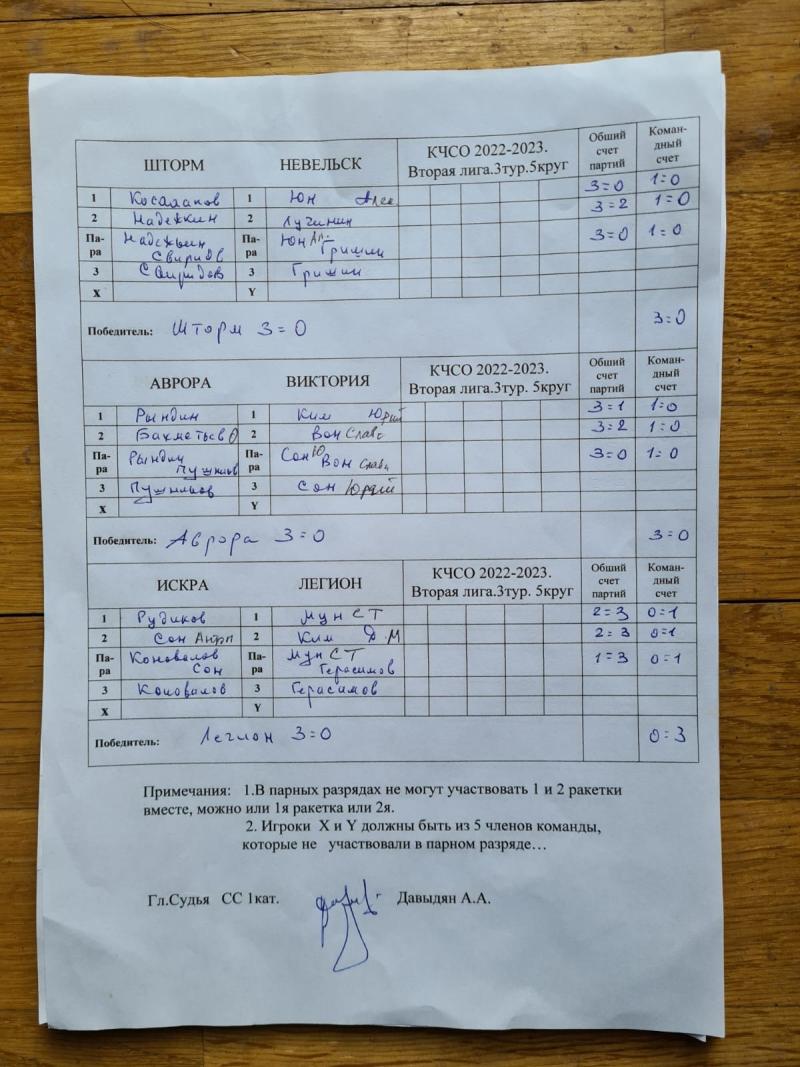 ШТОРМ НЕВЕЛЬСК КЧСО 2022-2023. Вторая лига.3тур.5круг Общий счет партий Коман-дный счет
1 Косолапов 1 Юн Алек 3=0 1=0
2 Надежкин 2 Лучинин 3=2 1=0
Па-ра Надежкин Свиридов Па-ра Юн Ал. Гришин 3=0 1=0
3 Свиридов 3 Гришин
X Y
Победитель: Шторм 3=0 3=0
АВРОРА ВИКТОРИЯ КЧСО 2022-2023. Вторая лига.3тур. 5круг Общий счет партий Коман-дный счет
1 Рындин 1 Ким Юрий 3=1 1=0
2 Бахметьев О 2 Вон Слава 3=2 1=0
Па-ра Рындин Пушников Па-ра Сон Ю Вон Слава 3=0 1=0
3 Пушников 3 Сон Юрий
X Y
Победитель: Аврора 3=0 3=0
ИСКРА ЛЕГИОН КЧСО 2022-2023. Вторая лига.3тур. 5круг Общий счет партий Коман-дный счет
1 Рудиков 1 Мун СТ 2=3 0=1
2 Сон 2 Ким Д.М 2=3 0=1
Па-ра Коновалов Сон Па-ра Мун СТ Герасимов 1=3 0=1
3 Коновалов 3 Герасимов
X Y
Победитель: Легион 3=0 0=3
Примечания: 1.В парных разрядах не могут участвовать 1 и 2 ракетки
вместе, можно или 1я ракетка или 2я.
2. Игроки X и Y должны быть из 5 членов команды,
которые не участвовали в парном разряде…
Гл.Судья СС 1кат. Давыдян А.А.